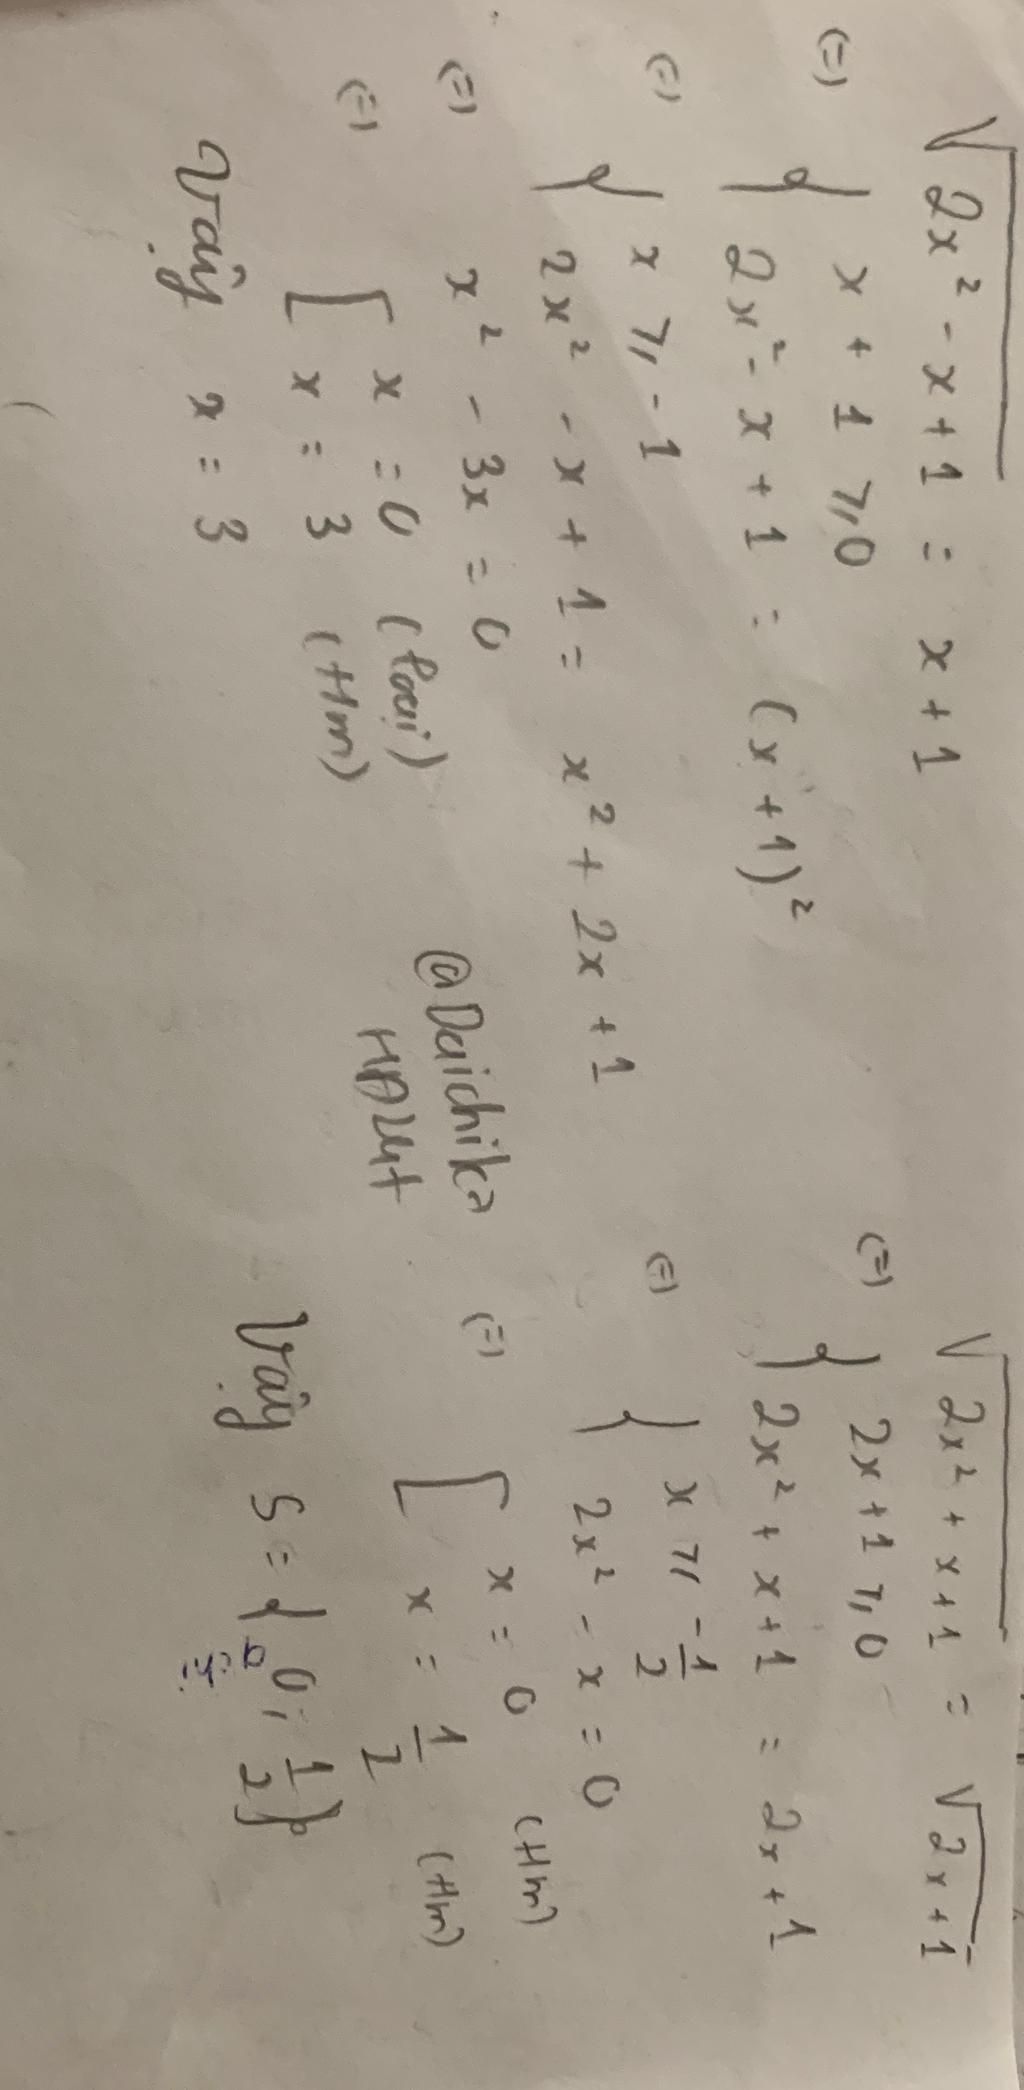 √2x² - x + 1 = x + 1
(=) { x + 1 ≥ 0
2x² - x + 1 = (x + 1)²
(=) { x ≥ -1
2x² - x + 1 = x² + 2x + 1
(=) x² - 3x = 0
(=) [ x = 0 (loại)
x = 3 (tm)
Vậy x = 3
@Daichika
HA24t
√2x² + x + 1 = √2x + 1
(=) { 2x + 1 ≥ 0
2x² + x + 1 = 2x + 1
(=) { x ≥ -1/2
2x² - x = 0
(=) [ x = 0 (tm)
x = 1/2 (tm)
Vậy S = { 0; 1/2 }